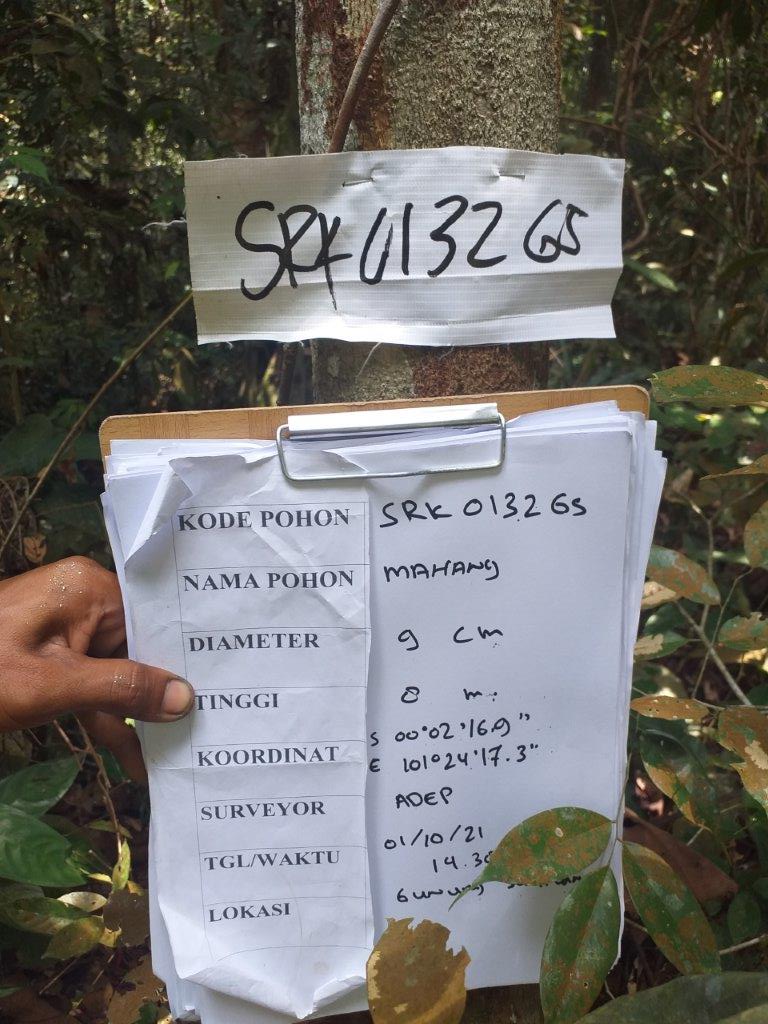 SRK 0132 GS
KODE POHON SRK 0132 GS
NAMA POHON MAHANG
DIAMETER 9 cm
TINGGI 8 m.
KOORDINAT S 00°02'16.9"
E 101°24'17.3"
SURVEYOR ADEP
TGL/WAKTU 01/10/21
14.30
LOKASI Gunung